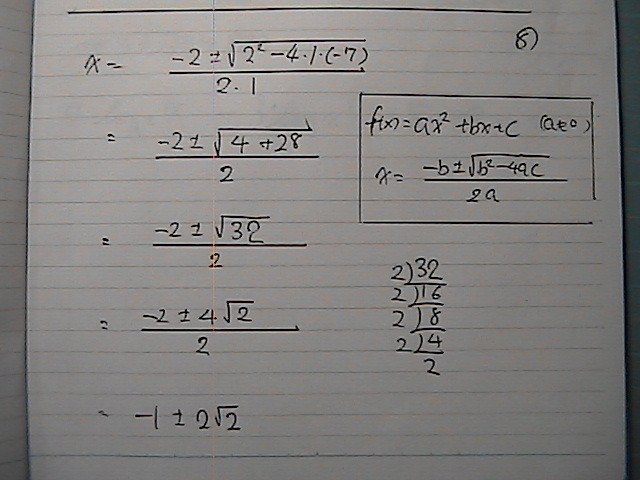 8)
x = (-2 ± √(2² - 4·1·(-7))) / (2·1)
= (-2 ± √(4 + 28)) / 2
= (-2 ± √32) / 2
= (-2 ± 4√2) / 2
= -1 ± 2√2
f(x) = ax² + bx + c (a≠0)
x = (-b ± √(b² - 4ac)) / 2a
2)32
2)16
2)8
2)4
2